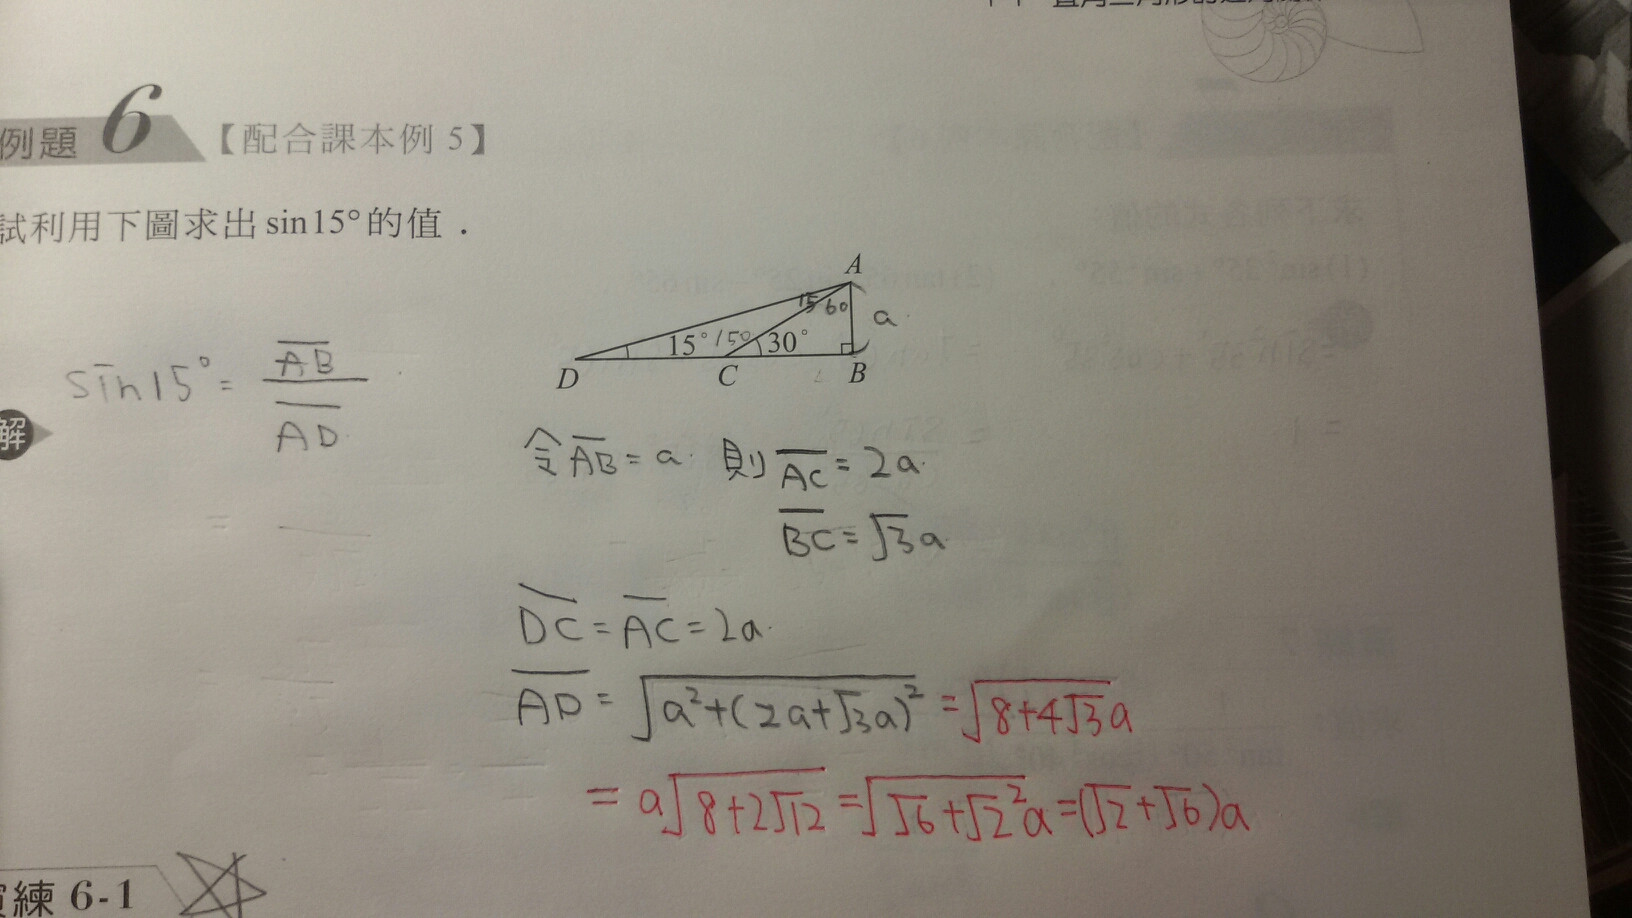 例題 6 【配合課本例 5】
試利用下圖求出 sin15° 的值．
A
15 60
a
15° 150 30°
D C B
sin15° = AB / AD
解
令 AB = a 則 AC = 2a
BC = √3a
DC = AC = 2a
AD = √(a²+(2a+√3a)²) = √(8+4√3)a
= a√(8+2√12) = √(√6+√2²)a = (√2+√6)a
練 6-1